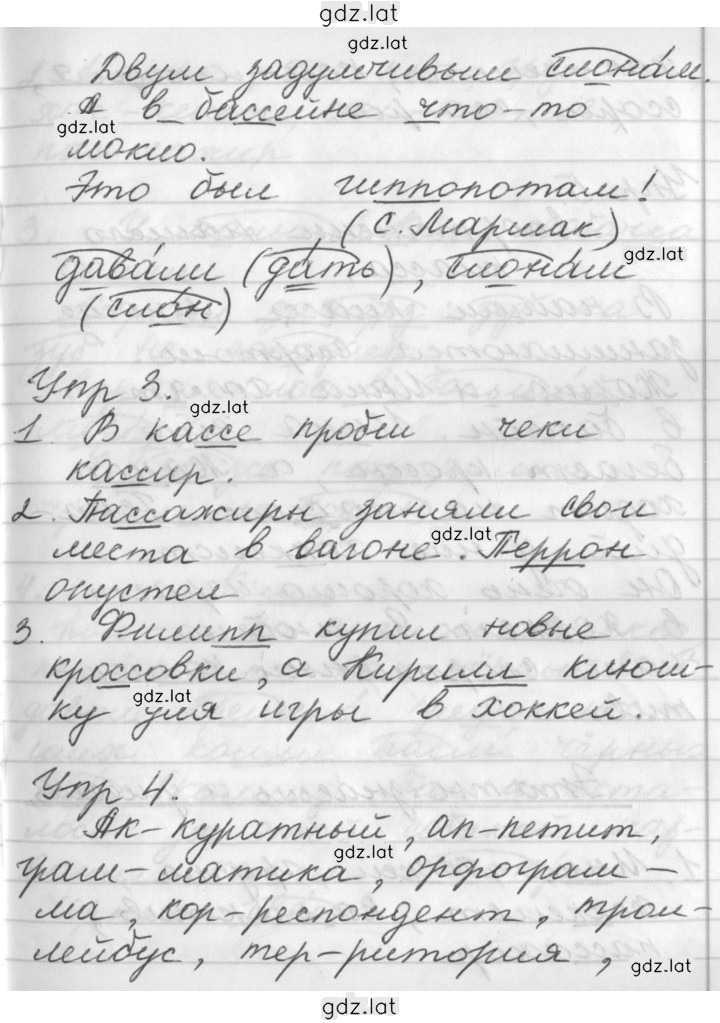 gdz.lat
gdz.lat
Двум задумчивым слонам.
А в бассейне что-то
gdz.lat
мокло.
Это был гиппопотам!
(С. Маршак)
gdz.lat
давали (дать), слонам
(слон)
Упр 3.
gdz.lat
1. В кассе пробил чеки
кассир.
2. Пассажиры заняли свои
места в вагоне. Перрон
gdz.lat
опустел
3. Филипп купил новые
кроссовки, а Кирилл клюш-
gdz.lat
ку для игры в хоккей.
Упр 4.
Ак-куратный, ап-петит,
gdz.lat
грам-матика, орфограм-
ма, кор-респондент, трол-
лейбус, тер-ритория,
gdz.lat
gdz.lat